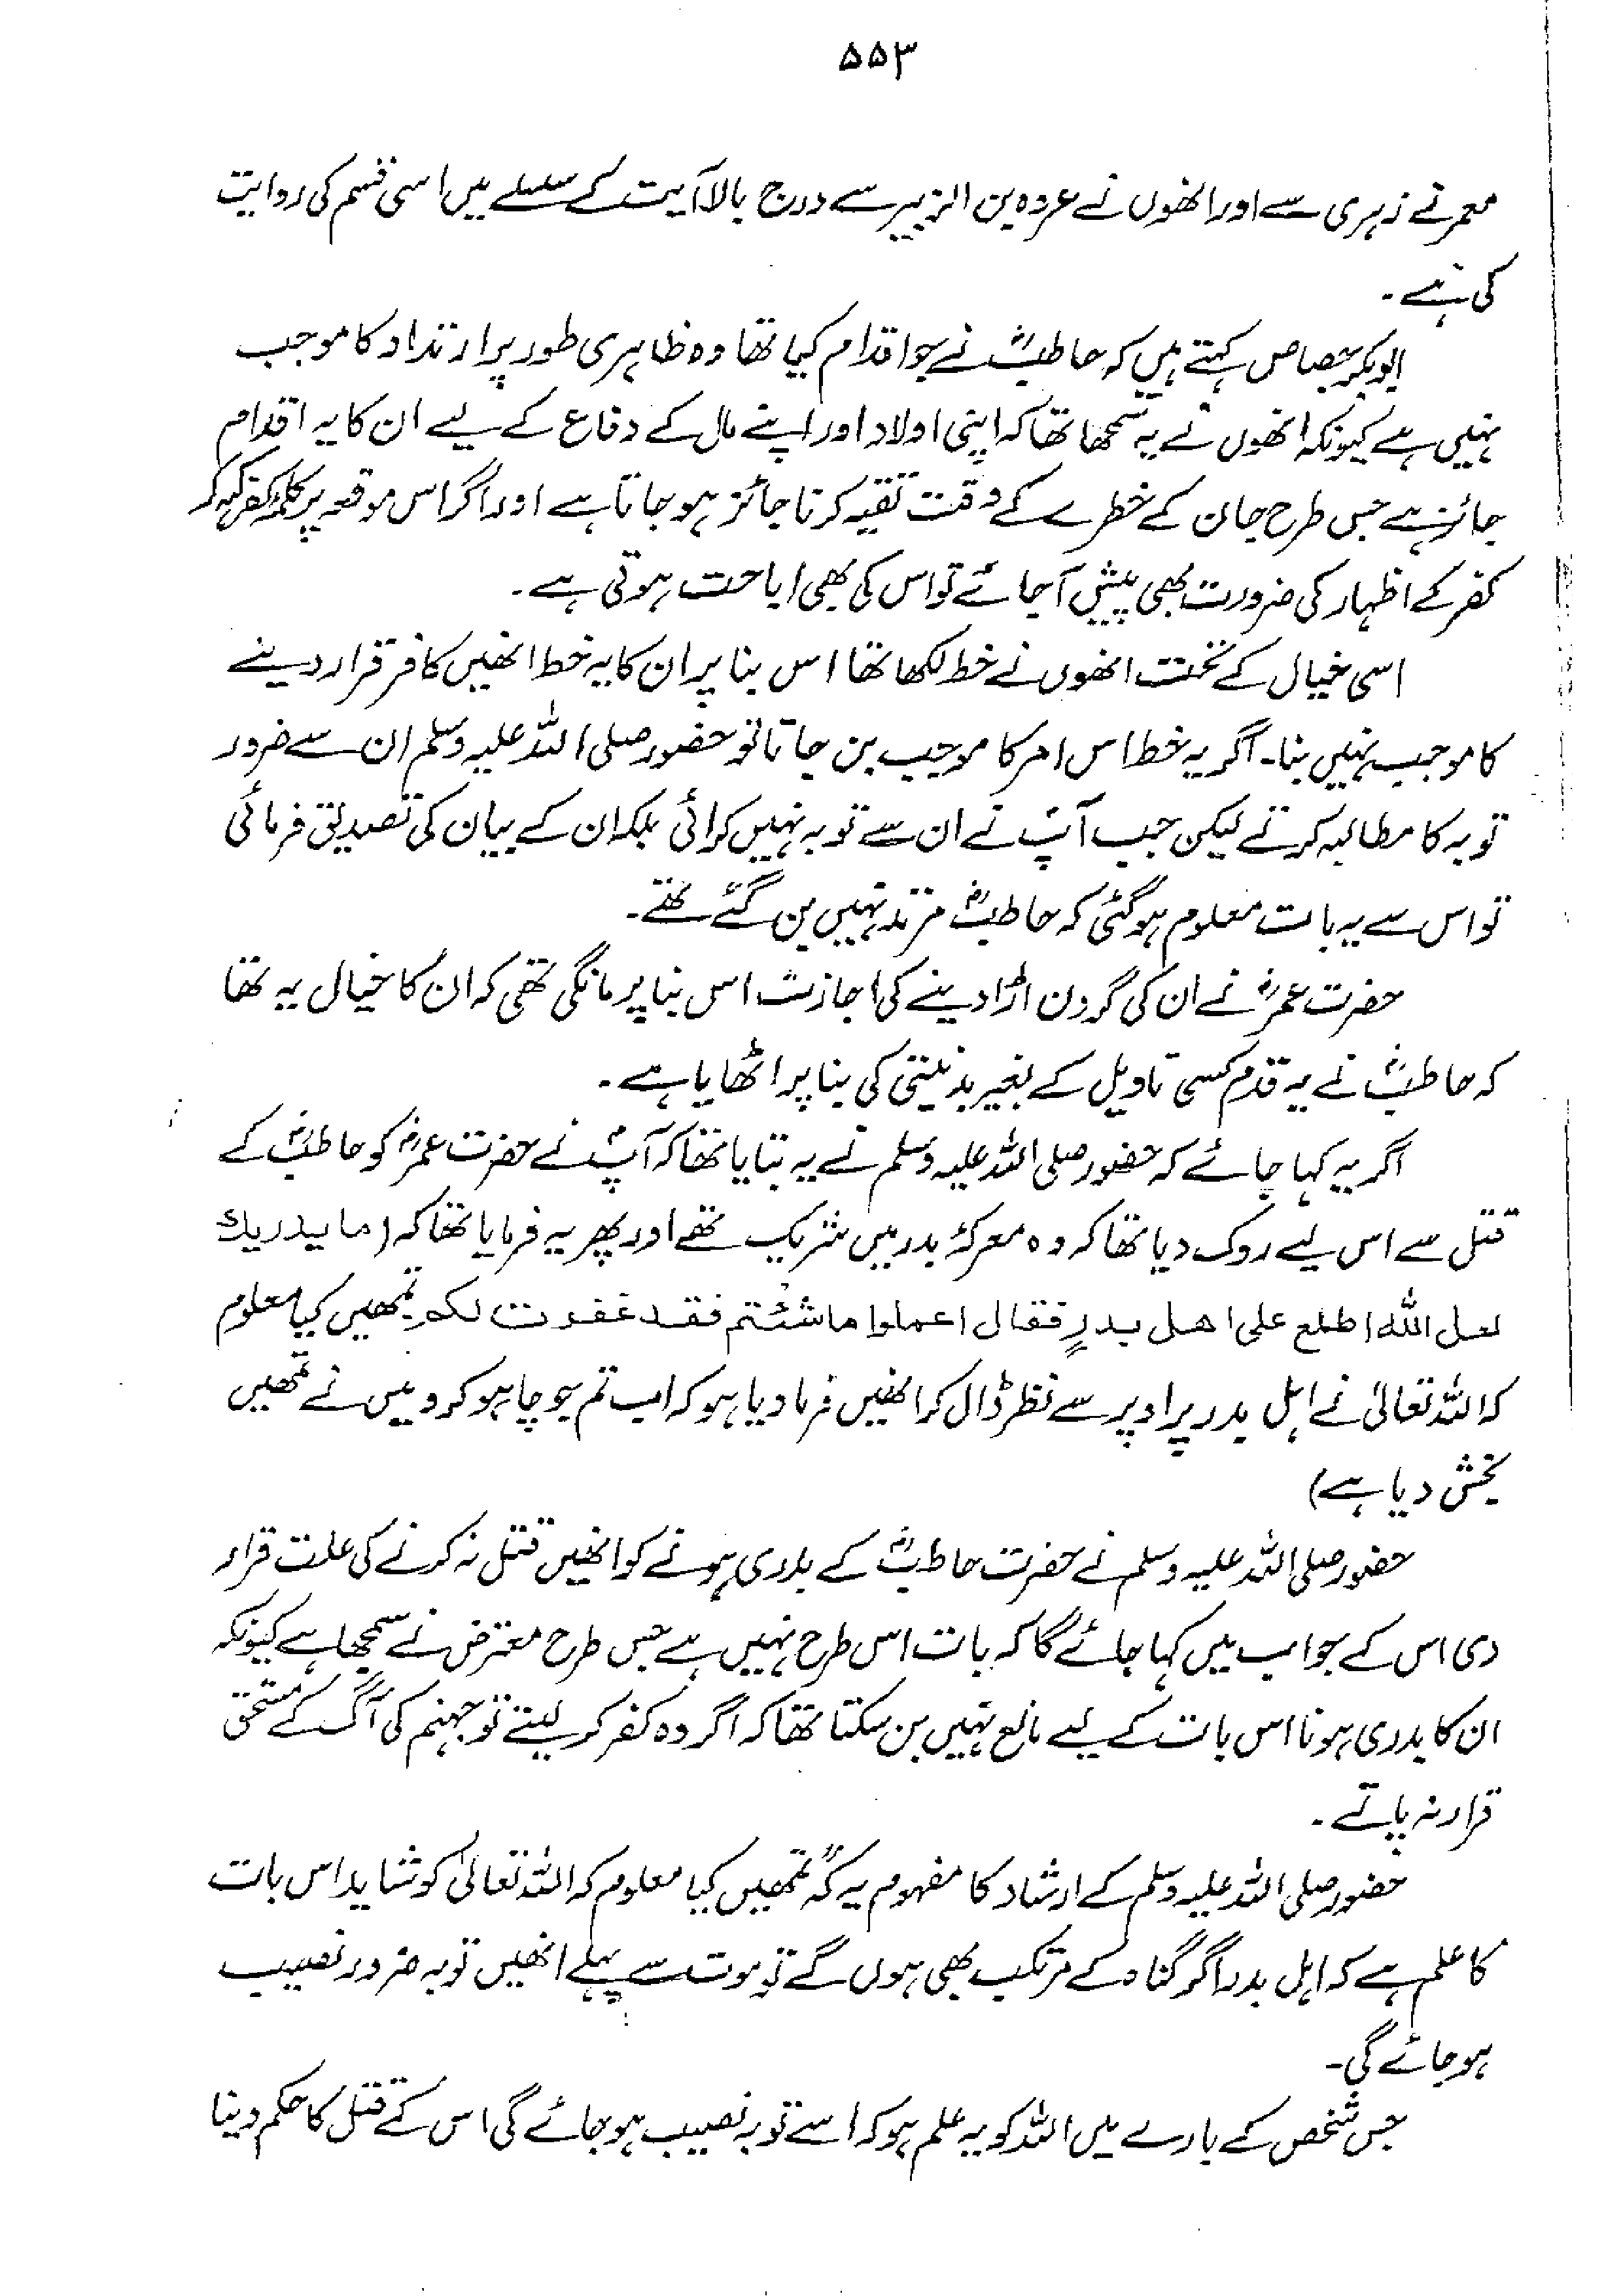 ۵۵۳
معمر نے زہری سے اور انھوں نے عروہ بن الزبیر سے درج بالا آیت کے سلسلے میں اسی قسم کی روایت
کی ہے۔
ابوبکر جصاص کہتے ہیں کہ حاطبؓ نے جو اقدام کیا تھا وہ ظاہری طور پر ارتداد کا موجب
نہیں ہے کیونکہ انھوں نے یہ سمجھا تھا کہ اپنی اولاد اور اپنے مال کے دفاع کے لیے ان کا یہ اقدام
جائز ہے جس طرح جان کے خطرے کے وقت تقیہ کرنا جائز ہو جاتا ہے اور اگر اس موقعہ پر کلمۂ کفر کہہ کر
کفر کے اظہار کی ضرورت بھی پیش آجائے تو اس کی بھی اباحت ہوتی ہے۔
اسی خیال کے تحت انھوں نے خط لکھا تھا اس بنا پر ان کا یہ خط انھیں کافر قرار دینے
کا موجب نہیں بنا۔ اگر یہ خط اس امر کا موجب بن جاتا تو حضور صلی اللہ علیہ وسلم ان سے ضرور
توبہ کا مطالبہ کرتے لیکن جب آپؐ نے ان سے توبہ نہیں کرائی بلکہ ان کے بیان کی تصدیق فرمائی
تو اس سے یہ بات معلوم ہوگئی کہ حاطبؓ مرتد نہیں بن گئے تھے۔
حضرت عمرؓ نے ان کی گردن اڑا دینے کی اجازت اس بنا پر مانگی تھی کہ ان کا خیال یہ تھا
کہ حاطبؓ نے یہ قدم کسی تاویل کے بغیر بدنیتی کی بنا پر اٹھایا ہے۔
اگر یہ کہا جائے کہ حضور صلی اللہ علیہ وسلم نے یہ بتایا تھا کہ آپؐ نے حضرت عمرؓ کو حاطبؓ کے
قتل سے اس لیے روک دیا تھا کہ وہ معرکۂ بدر میں شریک تھے اور پھر یہ فرمایا تھا کہ (ما یدریك
لعل اللہ اطلع علی اھل بدرٍ فقال اعملوا ما شئتم فقد غفرت لکم۔ تمھیں کیا معلوم
کہ اللہ تعالیٰ نے اہل بدر پر اوپر سے نظر ڈال کر انھیں فرما دیا ہو کہ اب تم جو چاہو کرو میں نے تمھیں
بخش دیا ہے)
حضور صلی اللہ علیہ وسلم نے حضرت حاطبؓ کے بدری ہونے کو انھیں قتل نہ کرنے کی علت قرار
دی اس کے جواب میں کہا جائے گا کہ بات اس طرح نہیں ہے جس طرح معترض نے سمجھا ہے کیونکہ
ان کا بدری ہونا اس بات کے لیے مانع نہیں بن سکتا تھا کہ اگر وہ کفر کر لیتے تو جہنم کی آگ کے مستحق
قرار نہ پاتے۔
حضور صلی اللہ علیہ وسلم کے ارشاد کا مفہوم یہ کہ "تمھیں کیا معلوم کہ اللہ تعالیٰ کو شاید اس بات
کا علم ہے کہ اہل بدر اگر گناہ کے مرتکب بھی ہوں گے تو موت سے پہلے انھیں توبہ ضرور نصیب
ہو جائے گی۔
جس شخص کے بارے میں اللہ کو یہ علم ہو کہ اسے توبہ نصیب ہو جائے گی اس کے قتل کا حکم دینا